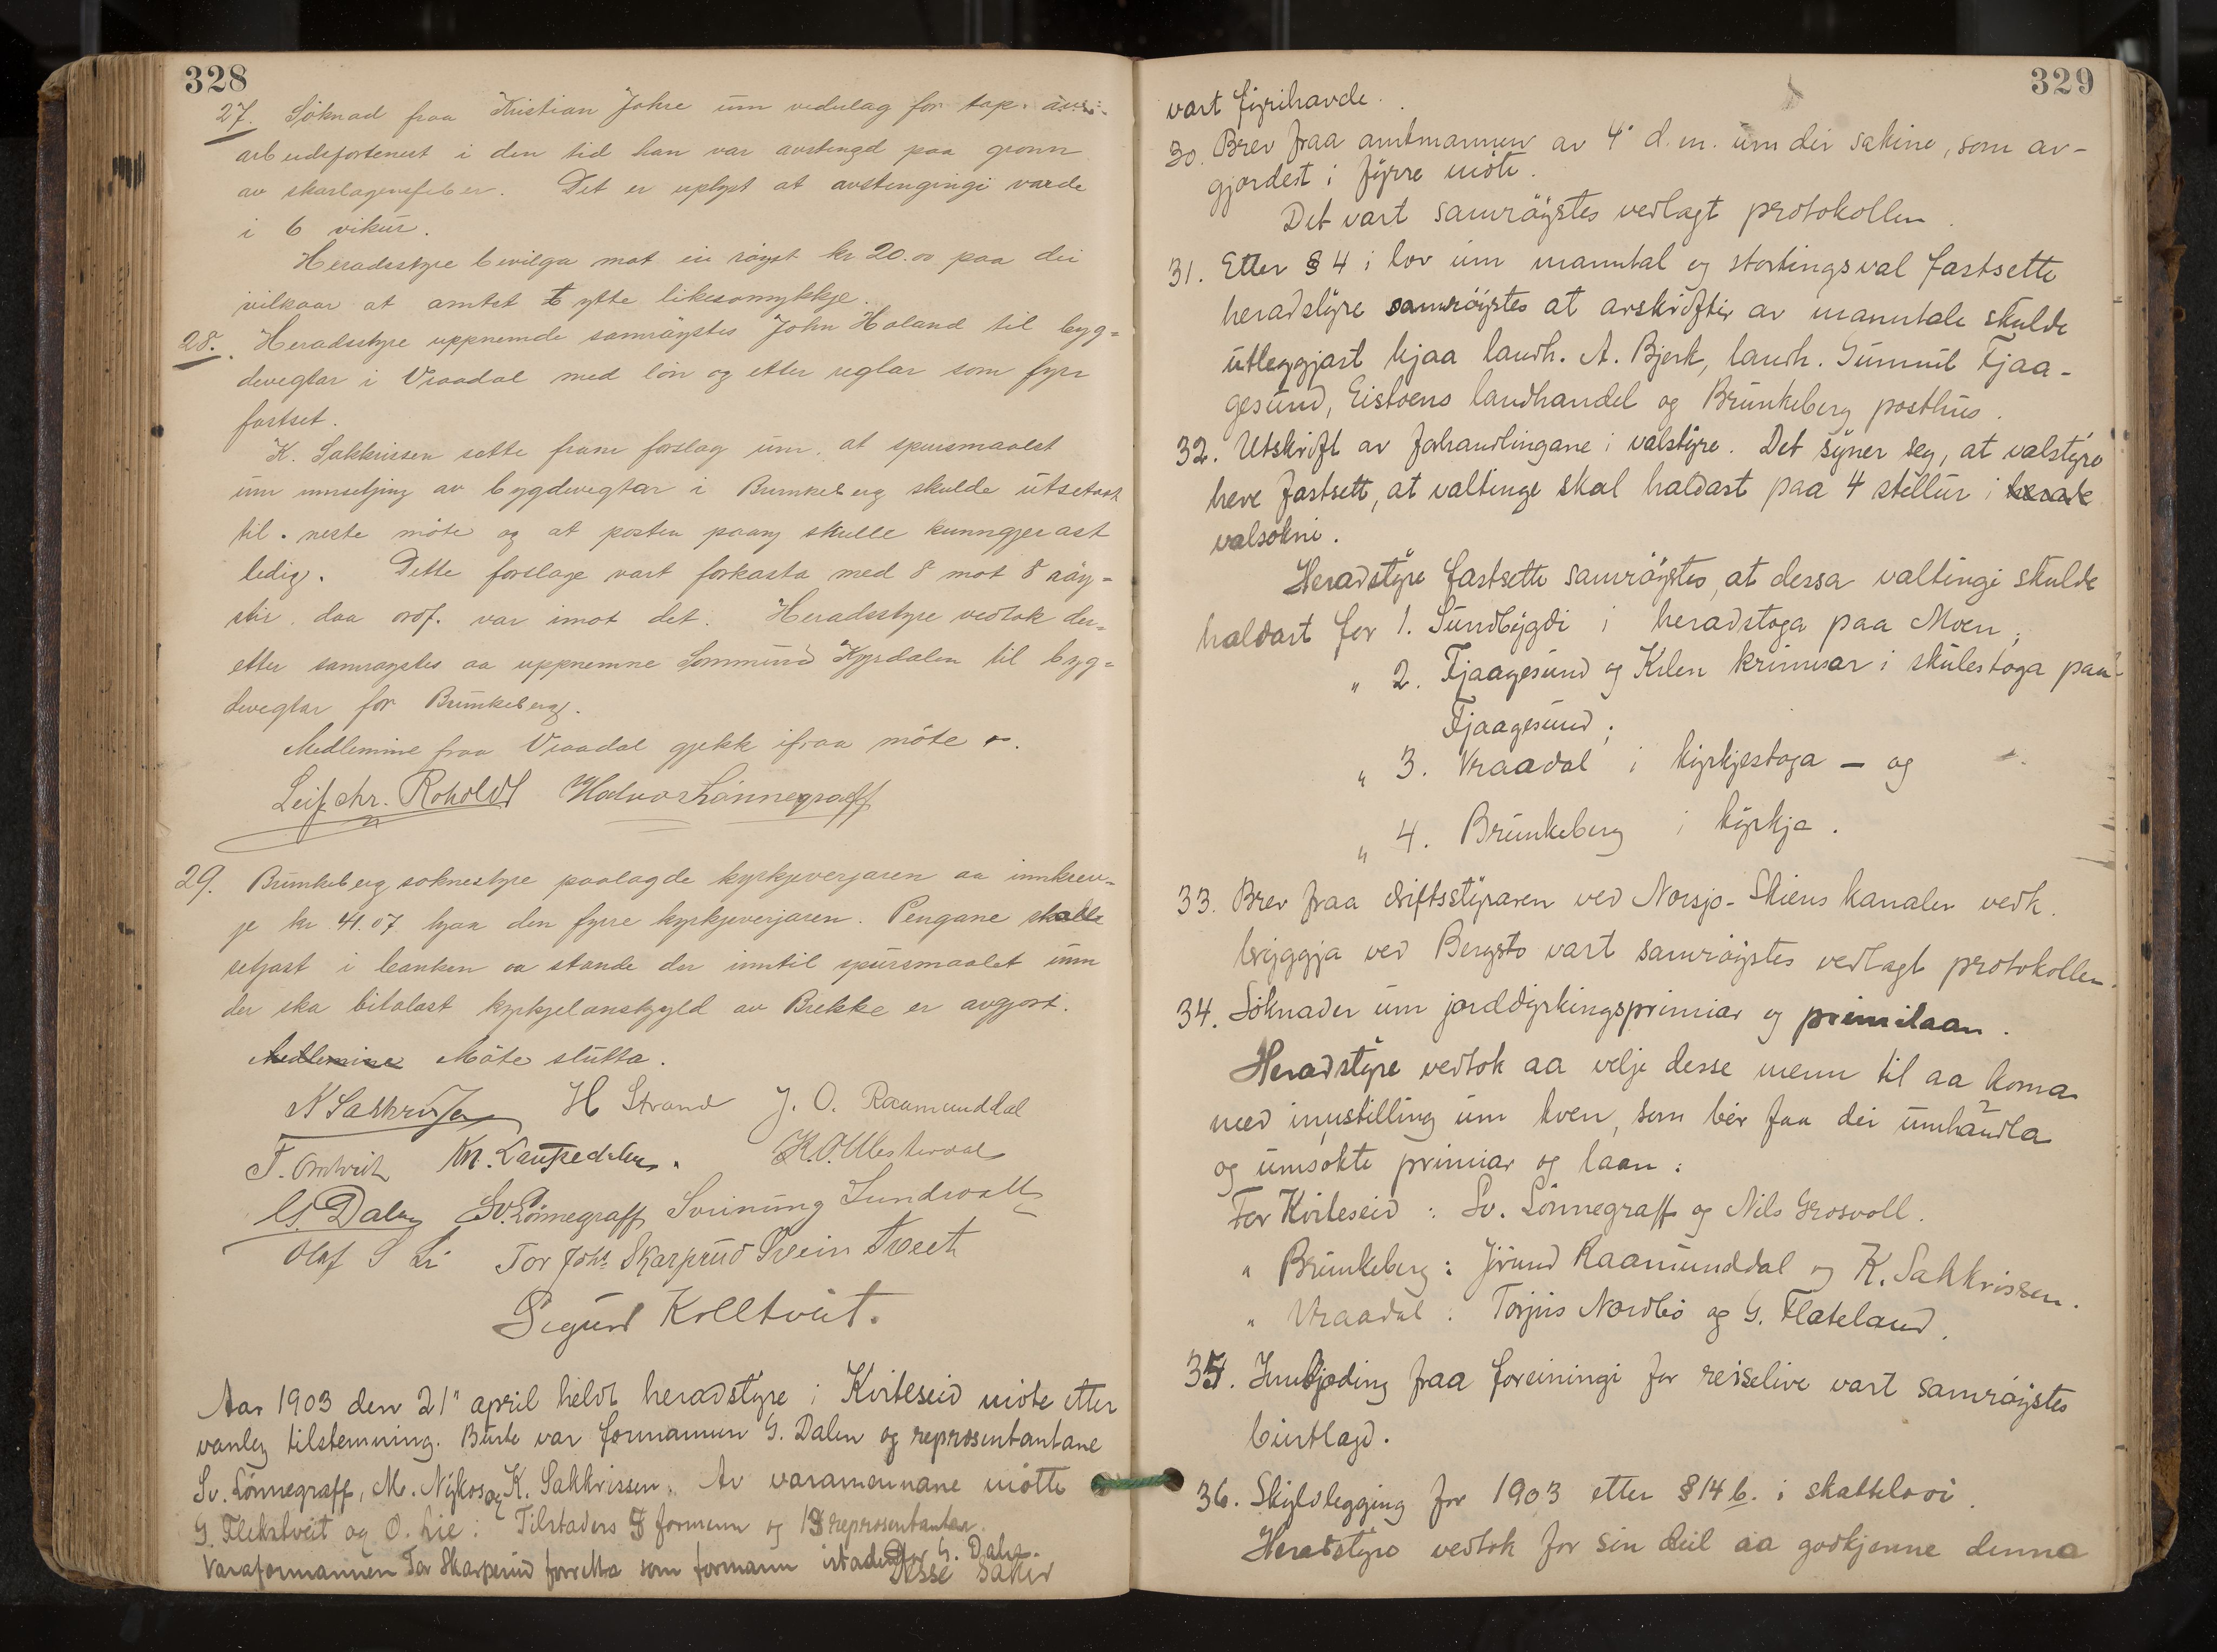 328
27. Söknad fraa Kristian Johre um vederlag for tap. av
arbeidsfortenest i den tid han var avstengd paa grunn
av skarlagensfeber. Det er uplyst at avstengingi varde
i 6 vikur.
Heradsstyre bevilga mot ei röyst kr 20.00 paa dei
vilkaar at amtet ytte likesomykkje.
28. Heradsstyre uppnemde samröystes John Holand til byg=
devegtar i Vraadal med lön og etter reglar som fyrr
fastset.
K. Sakkrissen sette fram forslag um, at spursmaalet
um umsetjing av bygdevegtar i Brunkeberg skulde utsetast
til neste möte og at posten paany skulle kunngjerast
ledig. Dette forslage vart forkasta med 8 mot 8 röy=
stir, daa ordf. var imot det. Heradsstyre vedtok der=
etter samröystes aa uppnemne Sommund Kyrdalen til byg=
devegtar for Brunkeberg.
Medlemine fraa Vraadal gjekk ifraa möte
Leif chr. Roholdt Halvor Lönnegraff
29. Brunkeberg soknestyre paalagde kyrkjeverjaren aa innkrev=
je kr 41.07 hjaa den fyrre kyrkjeverjaren. Pengane skalle
setjast i banken aa stande der inntil spursmaalet um
der ska bitalast kyrkjelanskyld av Brekke er avgjort.
Medlemine Möte slutta.
K Sakkrissen H Strand J. O. Raamunddal
T. Omtveit Kn. Lauvedalen. K.O. Utesterval
G Dalen Sv. Lönnegraff Sveinung Sundvoll
Olaf S Li Tor Johs Skarprud Svein Tveit
Sigurd Kolltveit.
Aar 1903 den 21" april heldt heradstyre i Kviteseid möte etter
vanleg tilstemning. Burte var formannen G. Dalen og representantane
Sv. Lönnegraff, M. Nykos og K. Sakkrissen. Av varamennane mötte
G. Flekstveit og O. Lie: Tilstades 5 formenn og 13 representantar.
Varaformannen Tor Skarperud forretta som formann istadenfor G. Dalen.
Desse saker
329
vart fyrihavde.
30. Brev fraa amtmannen av 4' d.m. um dei sakine, som av-
gjordest i fyrre möte.
Det vart samröystes vedlagt protokollen.
31. Etter § 4 i lov um manntal og stortingsval fastsette
heradstyre samröystes at avskrifter av manntale skulde
utleggjast hjaa landh. A. Bjerk, landh. Gunnul Fjaa-
gesund, Eistoens landhandel og Brunkeberg posthus.
32. Utskrift av forhandlingane i valstyre. Det syner seg, at valstyre
heve fastsett, at valtinge skal haldast paa 4 stellur i herade
valsokni.
Heradstyre fastsette samröystes, at dessa valtingi skulde
haldast for 1. Sundbygdi i heradstoga paa Moen;
" 2. Fjaagesund og Kilen krinsar i skulestoga paa
Fjaagesund;
" 3. Vraadal i kyrkjestoga – og
" 4. Brunkeberg i kyrkja.
33. Brev fraa driftsstyraren ved Norsjö-Skiens kanalen vedk.
bryggja ved Bergstö vart samröystes vedlagt protokollen.
34. Söknader um jorddyrkingsprimiar og primilaan.
Heradstyre vedtok aa velje desse menn til aa koma
med innstilling um kven, som bör faa dei umhandla
og umsökte primiar og laan:
For Kviteseid: Sv. Lönnegraff og Nils Grosvoll.
" Brunkeberg: Jörund Raamunddal og K. Sakkrissen.
" Vraadal: Torjus Nordbö og G. Flateland.
35. Innbjoding fraa foreiningi for reiselive vart samröystes
burtlagd.
36. Skyldlegging for 1903 etter § 14 b. i skattelovi.
Heradstyre vedtok for sin deil aa godkjenne denna